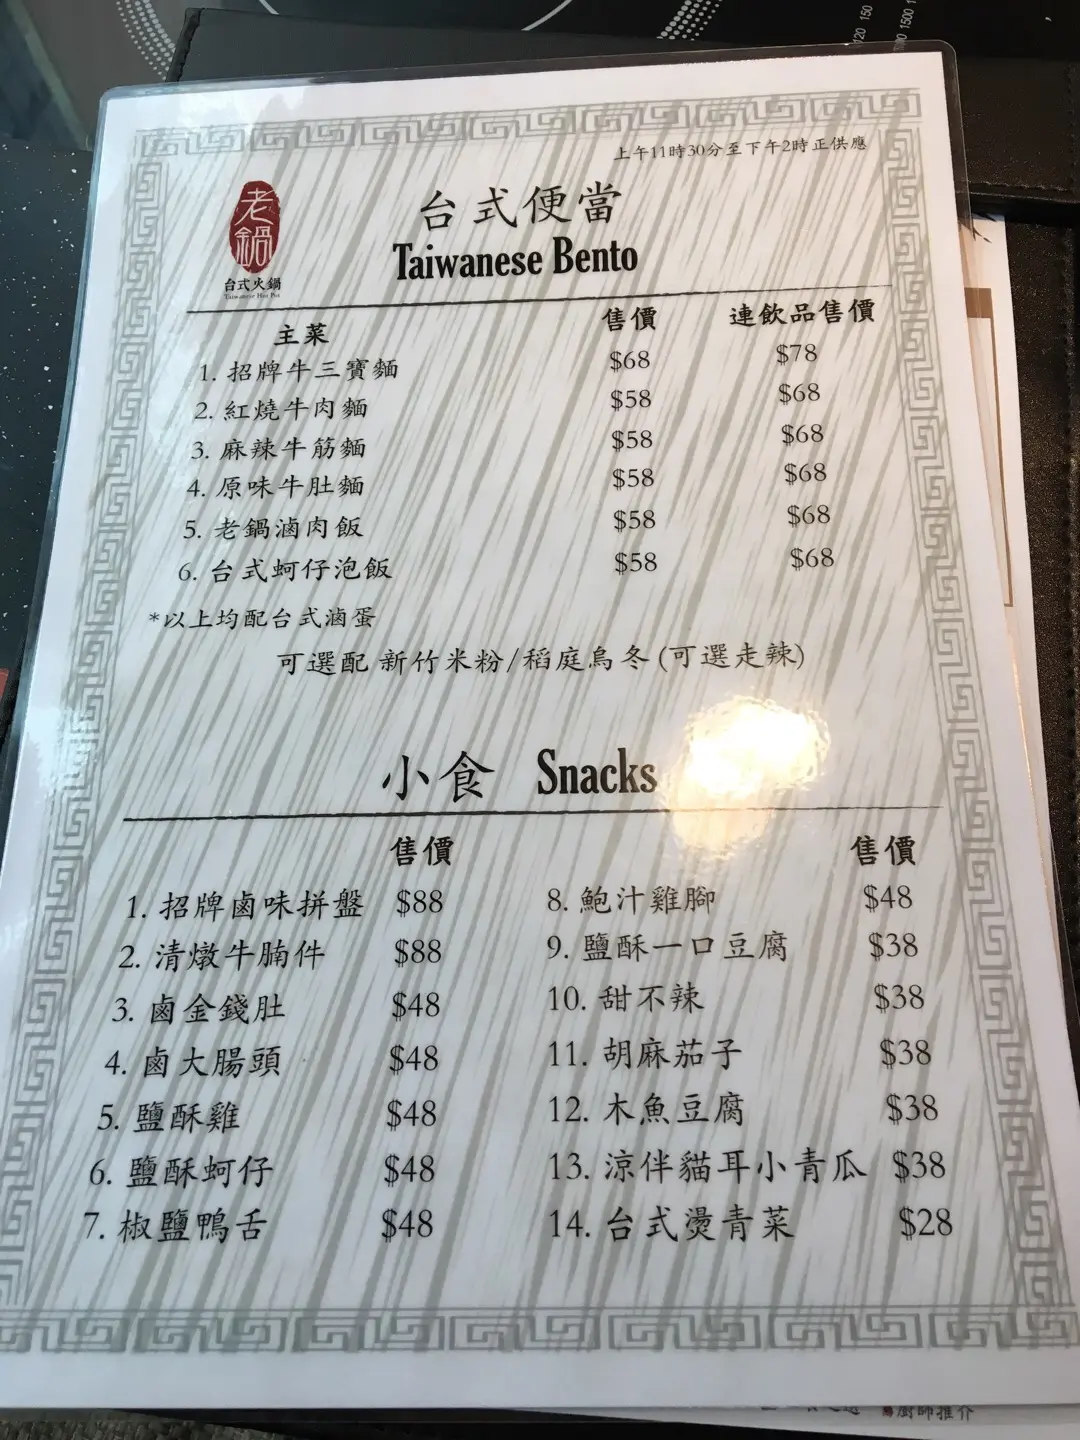 120 150
1500
上午11時30分至下午2時正供應
老鍋
台式火鍋
Taiwanese Hot Pot
台式便當
Taiwanese Bento
主菜 售價 連飲品售價
1. 招牌牛三寶麵 $68 $78
2. 紅燒牛肉麵 $58 $68
3. 麻辣牛筋麵 $58 $68
4. 原味牛肚麵 $58 $68
5. 老鍋滷肉飯 $58 $68
6. 台式蚵仔泡飯 $58 $68
*以上均配台式滷蛋
可選配 新竹米粉/稻庭烏冬(可選走辣)
小食 Snacks
售價 售價
1. 招牌鹵味拼盤 $88 8. 鮑汁雞腳 $48
2. 清燉牛腩件 $88 9. 鹽酥一口豆腐 $38
3. 鹵金錢肚 $48 10. 甜不辣 $38
4. 鹵大腸頭 $48 11. 胡麻茄子 $38
5. 鹽酥雞 $48 12. 木魚豆腐 $38
6. 鹽酥蚵仔 $48 13. 涼伴貓耳小青瓜 $38
7. 椒鹽鴨舌 $48 14. 台式燙青菜 $28
廚師推介